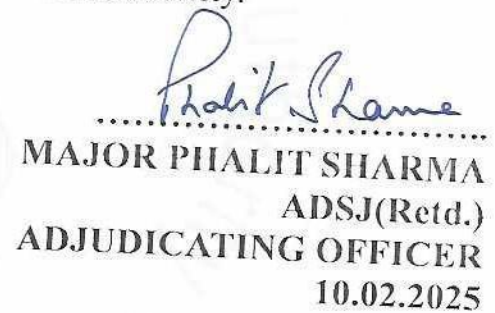 Phalit Sharma
........................................
MAJOR PHALIT SHARMA
ADSJ(Retd.)
ADJUDICATING OFFICER
10.02.2025